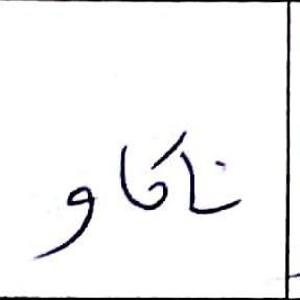 ناكاو